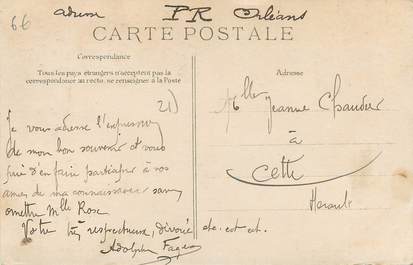 66
adresse PR Orléans
CARTE POSTALE
Correspondance
Tous les pays étrangers n'acceptent pas la
correspondance au recto, se renseigner à la Poste
21)
Je vous adresse l'expression
de mon bon souvenir et vous
prie d'en faire participer à vos
amies de ma connaissance sans
omettre Mlle Rose
Votre très respectueux, dévoué etc. ect. ect.
Adolphe
Adresse
Mlle Jeanne
à
Cette
Herault